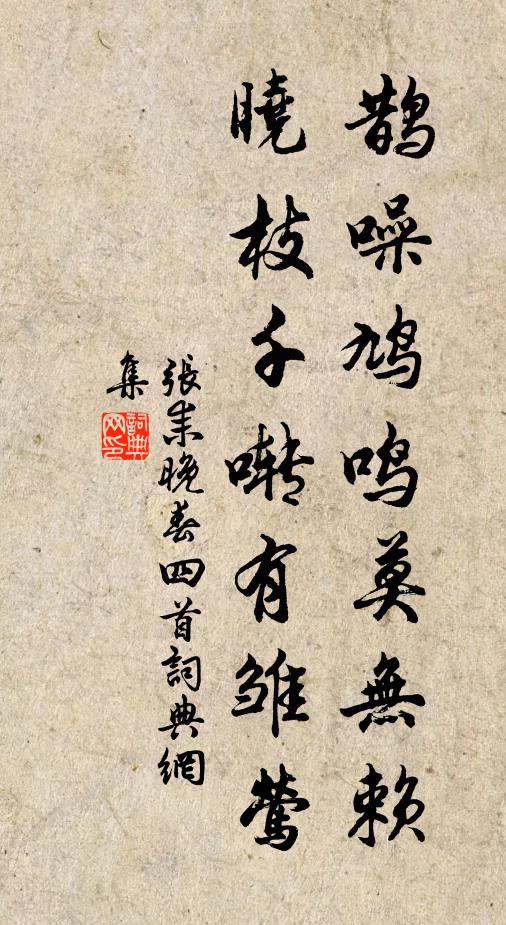 鵲噪鳩鳴莫無賴
曉枝千囀有雛鶯
張耒晚春四首詞典網
集
詞典
网印